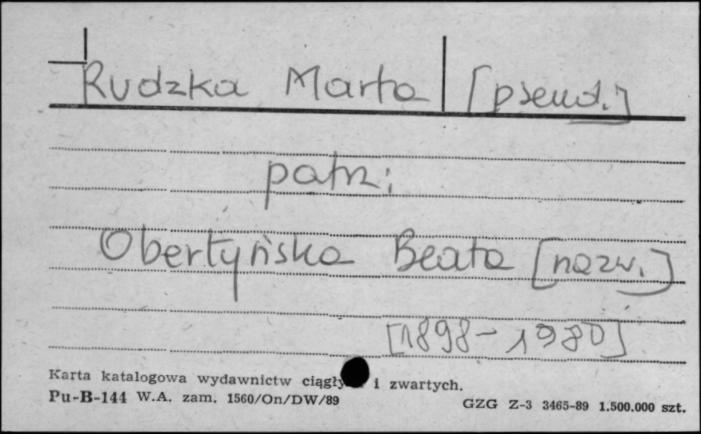 Rudzka Marta [pseud.]
patrz:
Obertyńska Beata [nazw.]
[1898-1980]
Karta katalogowa wydawnictw ciągły i zwartych.
Pu-B-144 W.A. zam. 1560/On/DW/89
GZG Z-3 3465-89 1.500.000 szt.